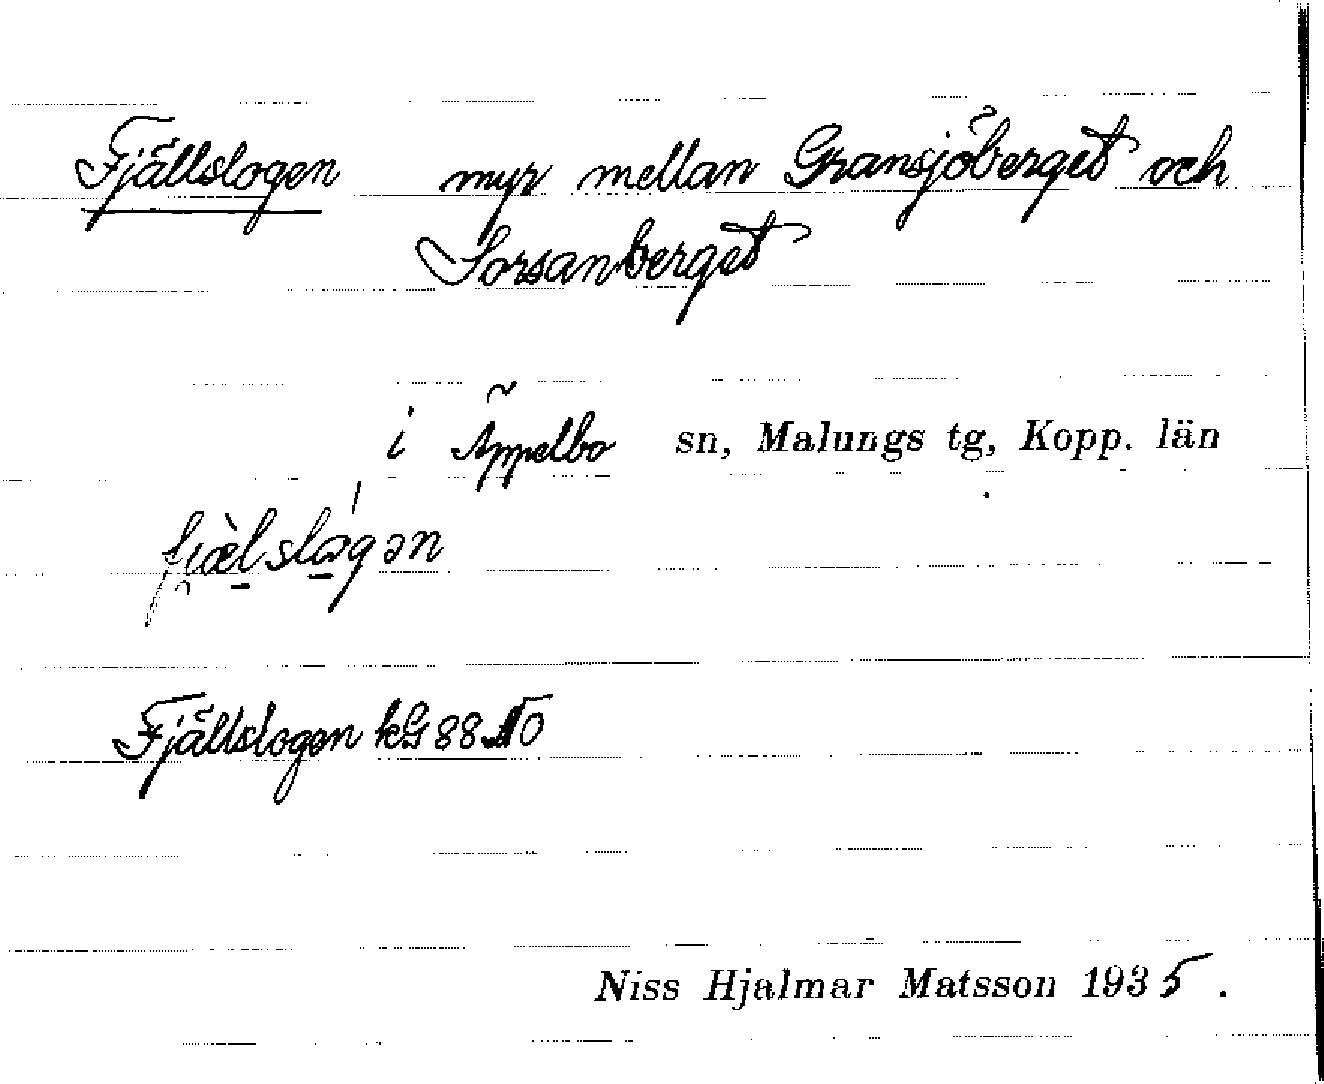 Fjällslogen myr mellan Gransjöberget och
Sorsanberget
i Äppelbo sn, Malungs tg, Kopp. län
Fjällslogen kG 88
Niss Hjalmar Matsson 1935.